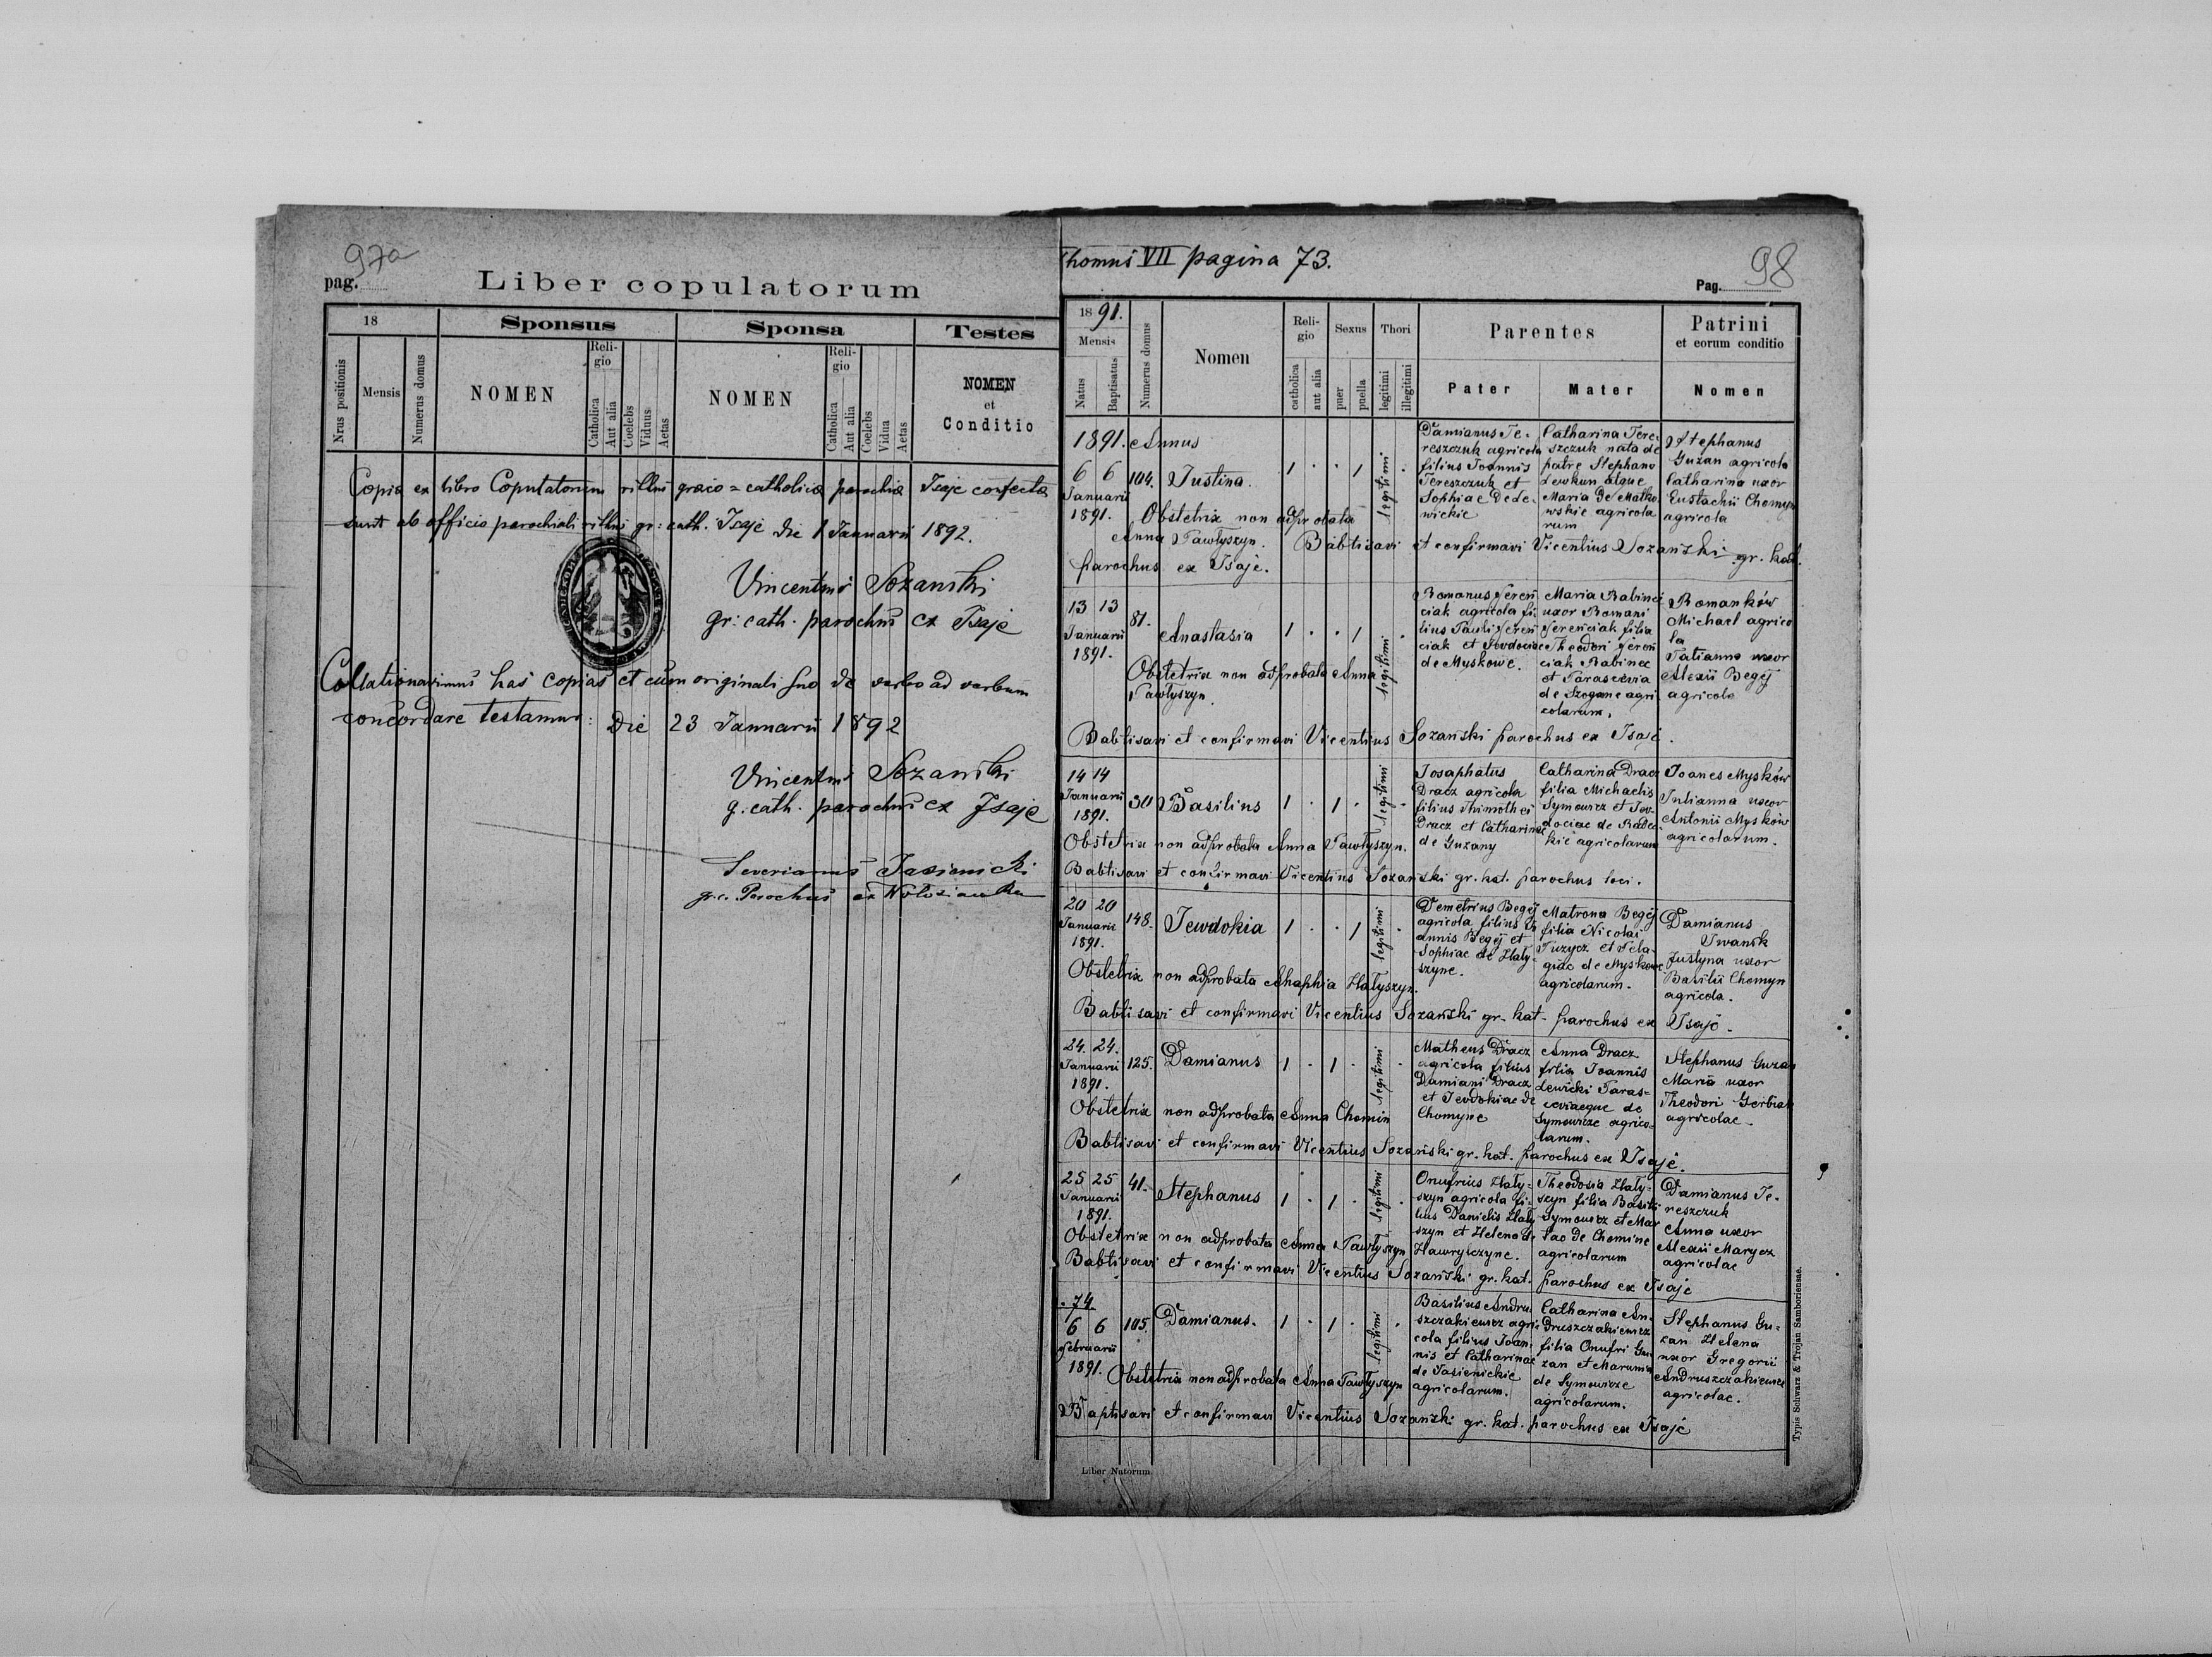 97a
pag.
Liber copulatorum
18
Sponsus
Sponsa
Testes
Nrus positionis
Mensis
Numerus domus
NOMEN
Religio
Catholica
Aut alia
Coelebs
Viduus
Aetas
NOMEN
Religio
Catholica
Aut alia
Coelebs
Vidua
Aetas
NOMEN
et
Conditio
Copia ex libro Copulatorum rittus graco=catholica parochia Isaje confecta
sunt ab officio parochiali rittus gr: cath. Isaje die 1 Januarii 1892.
Vincentius Sozanski
gr: cath. parochus ex Isaje
Collationavimus has copias et cum originali suo de verbo ad verbum
concordare testamur: Die 23 Januarii 1892
Vincentius Sozanski
g. cath. parochus ex Isaje
Severianus Jasienicki
gr.c. Parochus ex Wolosianka
Thomus VII pagina 73.
98
Pag.
1891.
Mensis
Natus
Baptisatus
Numerus domus
Nomen
Religio
catholica
aut alia
Sexus
puer
puella
Thori
legitimi
illegitimi
Parentes
Pater
Mater
Patrini
et eorum conditio
Nomen
1891. Annus
6 6
Januarii
1891.
104. Justina.
1 . . 1 legitimi .
Damianus Te-
reszczuk agricola
filius Joannis
Tereszczuk et
Sophiae Dede-
wickie
Catharina Tere-
szczuk nata de
patre Stephano
Lewkun atque
Maria de Matko
wskie agricola
rum
Stephanus
Guzan agricola
Catharina uxor
Eustachii Chomyn
agricola
Obstetrix non adprobata
Anna Pawłyszyn. Babtisavi et confirmavi Vicentius Sozański gr. kat.
parochus ex Isaje.
13 13
Januarii
1891.
81. Anastasia
1 . . 1 legitimi .
Romanus Fereń
ciak agricola fi-
lius Pauli Fereń
ciak et Jewdociae
de Myskowe.
Maria Babinec
uxor Romani
Ferenciak filia
Theodori Fereń
ciak Babinec
et Parascevia
de Szogane agri-
colarum.
Romanków
Michael agrico
la
Tatianna uxor
Alexii Begej
agricola
Obstetrix non adprobata Anna
Pawłyszyn.
Babtisavi et confirmavi Vicentius Sozański parochus ex Isaje.
14 14
Januarii
1891.
30 Basilius
1 . 1 . legitimi .
Josaphatus
Dracz agricola
filius Thimothei
Dracz et Catharinae
de Guzany
Catharina Dracz
filia Michaelis
Symowicz et Jew-
dociae de Radec-
kie agricolarum
Joanes Mysków
Julianna uxor
Antonii Mysków
agricolarum.
Obstetrix non adprobata Anna Pawłyszyn.
Babtisavi et confirmavi Vicentius Sozański gr. kat. parochus loci.
20 20
Januarii
1891.
148. Jewdokia
1 . . 1 legitimi .
Demetrius Begej
agricola filius Jo
annis Begej et
Sophiae de Hały-
szyne.
Matrona Begej
filia Nicolai
Tuzycz et Pela-
giae de Myskowe
agricolarum.
Damianus
Iwanik
Justyna uxor
Basilii Chomyn
agricola.
Obstetrix non adprobata Ahaphia Hałyszyn.
Babtisavi et confirmavi Vicentius Sozański gr. kat. parochus ex Isaje.
24. 24.
Januarii
1891.
125. Damianus
1 . 1 . legitimi .
Matheus Dracz
agricola filius
Damiani Dracz
et Jewdokiae de
Chomyne
Anna Dracz
filia Joannis
Lewicki Paras-
ceviaeque de
Symowicze agrico-
larum.
Stephanus Guzan
Maria uxor
Theodori Gerbiak
agricolae.
Obstetrix non adprobata Anna Chomin
Babtisavi et confirmavi Vicentius Sozański gr. kat. parochus ex Isaje.
25 25
Januarii
1891.
41. Stephanus
1 . 1 . legitimi .
Onufrius Hały-
szyn agricola fi-
lius Danielis Hały
szyn et Helena de
Hawryłczyne.
Theodosia Hały-
szyn filia Basilii
Symowicz et Mar
tae de Chomine
agricolarum
Damianus Te-
reszczuk
Anna uxor
Alexii Marycz
agricolae
Obstetrix non adprobata Anna Pawłyszyn
Babtisavi et confirmavi Vicentius Sozański gr. kat. parochus ex Isaje
. 74
6 6
Februarii
1891.
105. Damianus.
1 . 1 . legitimi .
Basilius Andru
szczakiewicz agri-
cola filius Joan-
nis et Catharinae
de Jasienickie
agricolarum.
Catharina An-
druszczakiewicz
filia Onufri Gu-
zan et Marunia
de Symowicze
agricolarum.
Stephanus Gu-
zan Helena
uxor Gregorii
Andruszczakiewicz
agricolae.
Obstetrix non adprobata Anna Pawłyszyn
Baptisavi et confirmavi Vicentius Sozański gr. kat. parochus ex Isaje
Liber Natorum.
Typis Schwarz & Trojan Samboriensae.